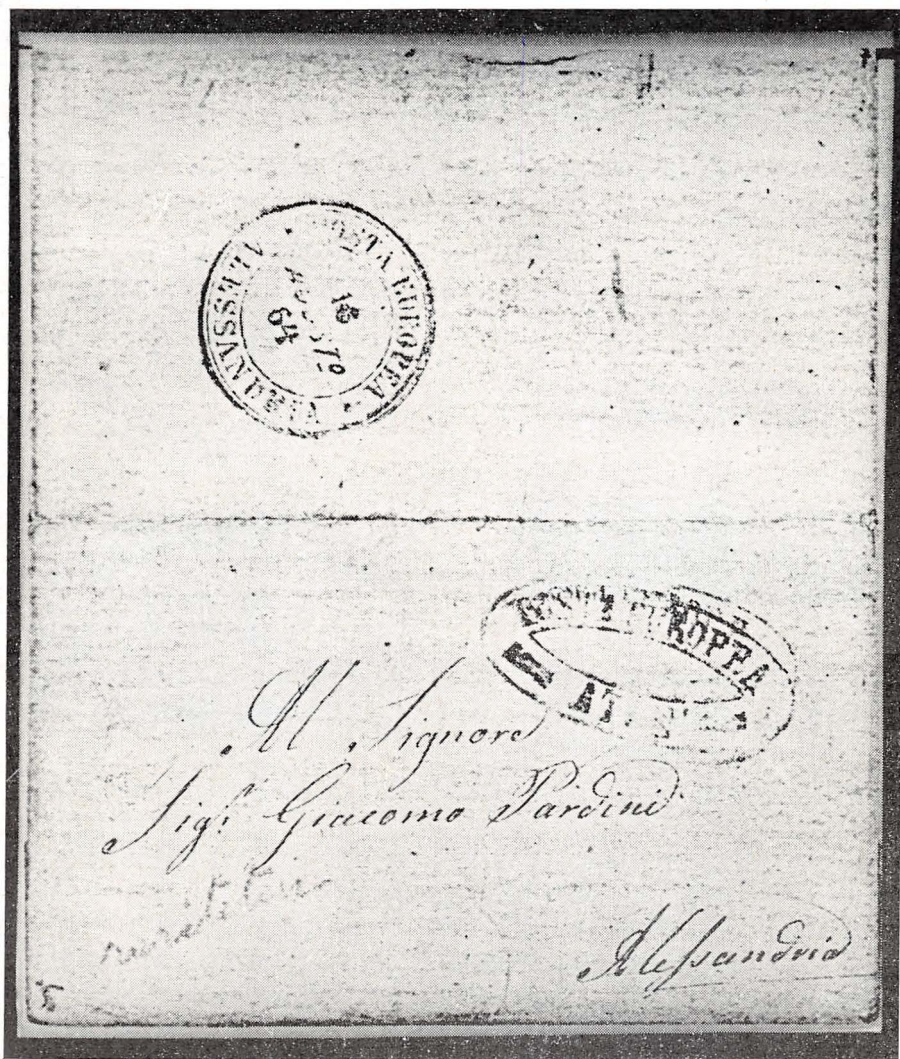 POSTA EUROPEA
ALESSANDRIA
16
64
POSTA EUROPEA
Al Signore
Sigr. Giacomo Pardini
Alessandria